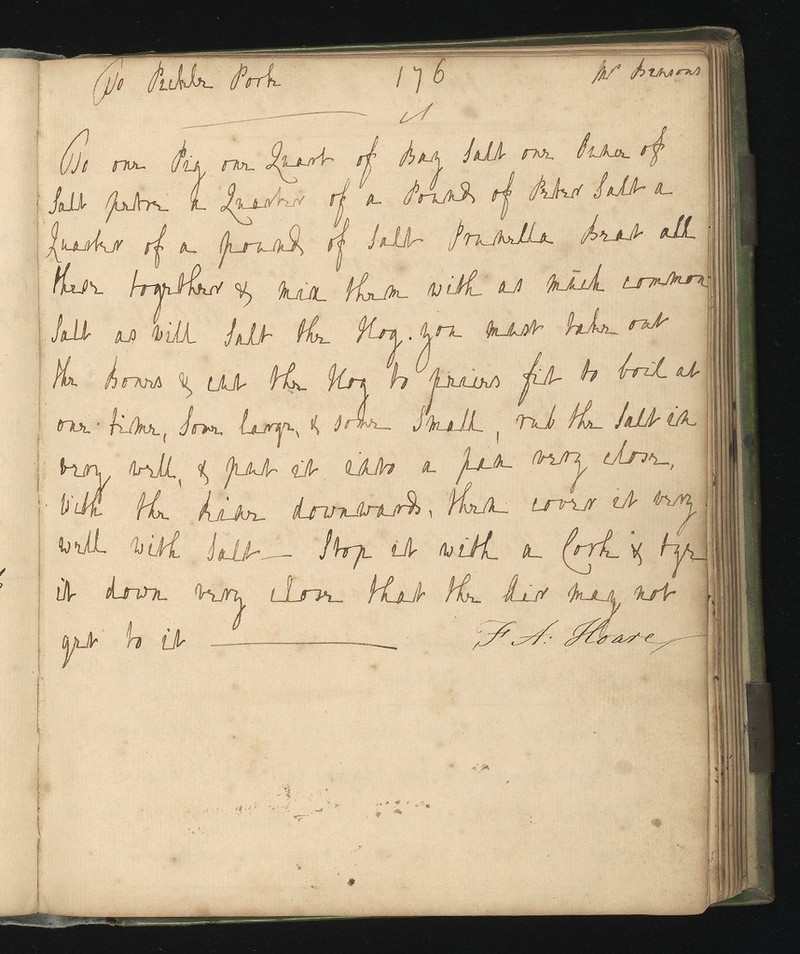 To Pickle Pork 176 Mr Bensons
To one Pig one Quart of Bay Salt one Ounce of
Salt petre a Quarter of a Pound of Peter Salt a
Quarter of a pound of Salt Prunella Beat all
these together & mix them with as much common
Salt as will Salt the Hog. you must take out
the Bones & cut the Hog to peices fit to boil at
one time, Some large, & some Small, rub the Salt in
very well, & put it into a pan very close,
With the Skins downwards, then cover it very
well with Salt — Stop it with a Cork & tye
it down very close that the Air may not
get to it — F A: Hoare